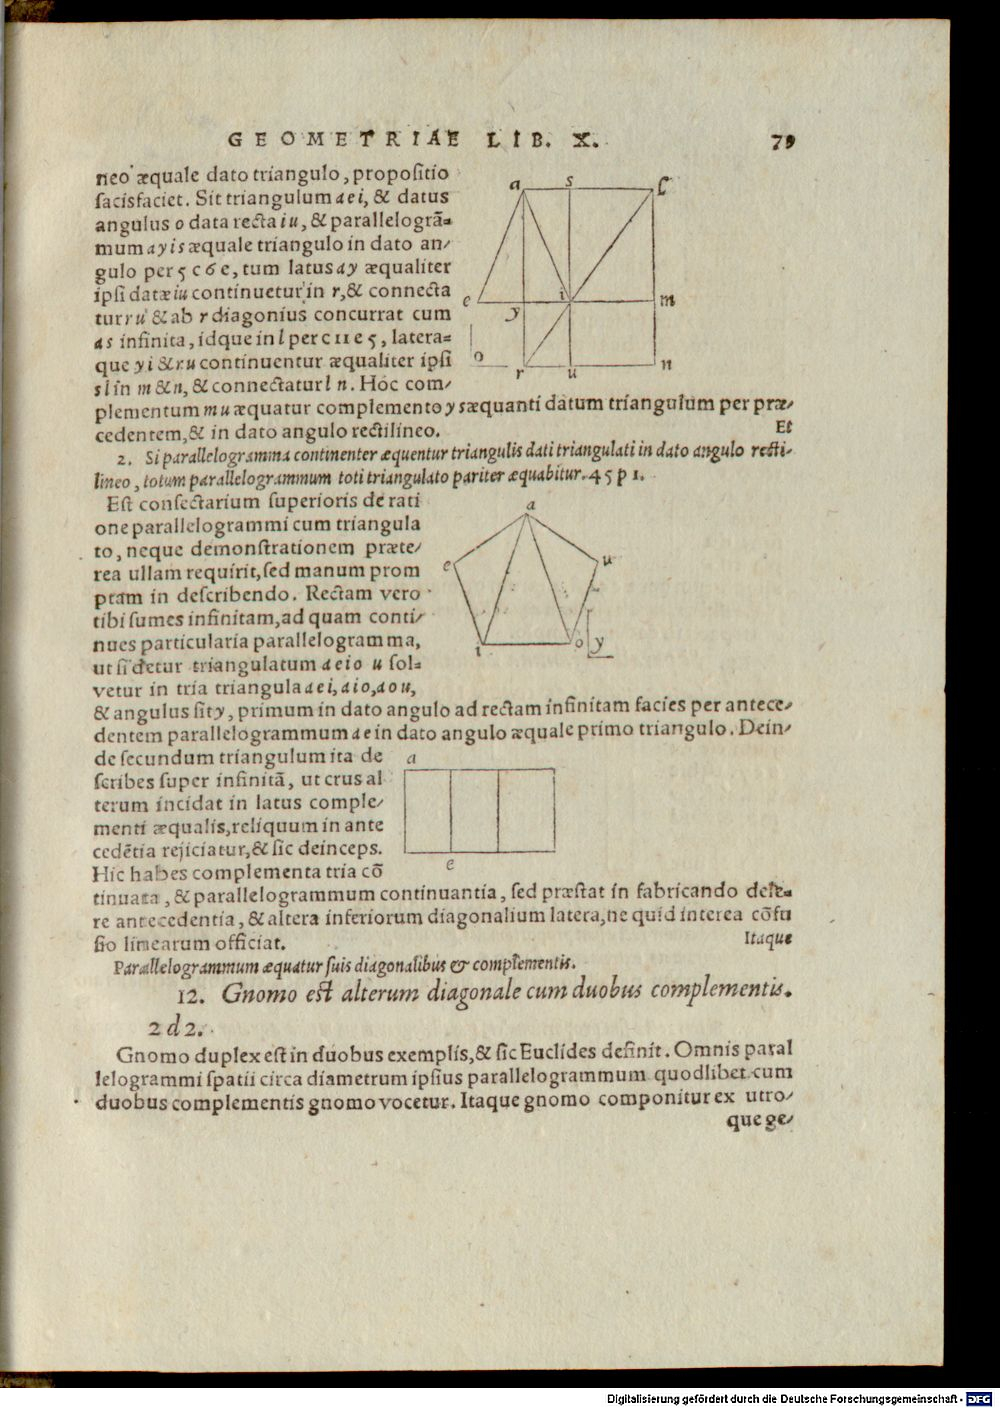 GEOMETRIAE LIB. X. 79
neo æquale dato triangulo, propositio
satisfaciet. Sit triangulum aei, & datus
angulus o data recta iu, & parallelogrã=
mum ayis æquale triangulo in dato an/
gulo per 5 c 6 e, tum latus ay æqualiter
ipsi datæ iu continuetur in r, & connecta
tur ru & ab r diagonius concurrat cum
as infinita, idque in l per c 11 e 5, latera=
que yi & ru continuentur æqualiter ipsi
sl in m & n, & connectatur l n. Hoc com/
plementum mu æquatur complemento ys æquanti datum triangulum per præ/
cedentem, & in dato angulo rectilineo. Et
a s l
e i m
y
o r u n
2. Si parallelogramma continenter æquentur triangulis dati triangulati in dato angulo recti-
lineo, totum parallelogrammum toti triangulato pariter æquabitur. 45 p 1.
Est consectarium superioris de rati
one parallelogrammi cum triangula
to, neque demonstrationem præte/
rea ullam requirit, sed manum prom
ptam in describendo. Rectam vero
tibi sumes infinitam, ad quam conti/
nues particularia parallelogramma,
ut si detur triangulatum aeio u sol=
vetur in tria triangula aei, aio, aou,
& angulus sit y, primum in dato angulo ad rectam infinitam facies per antece/
dentem parallelogrammum ae in dato angulo æquale primo triangulo. Dein/
a
e u
i o y
de secundum triangulum ita de
scribes super infinitã, ut crus al
terum incidat in latus comple/
menti æqualis, reliquum in ante
cedẽtia rejiciatur, & sic deinceps.
Hic habes complementa tria cõ
tinuata, & parallelogrammum continuantia, sed præstat in fabricando dele=
re antecedentia, & altera inferiorum diagonalium latera, ne quid interea cõfu
sio linearum officiat. Itaque
a
e
Parallelogrammum æquatur suis diagonalibus & complementis.
12. Gnomo est alterum diagonale cum duobus complementis.
2 d 2.
Gnomo duplex est in duobus exemplis, & sic Euclides definit. Omnis paral
lelogrammi spatii circa diametrum ipsius parallelogrammum quodlibet cum
duobus complementis gnomo vocetur. Itaque gnomo componitur ex utro/
que ge/
Digitalisierung gefördert durch die Deutsche Forschungsgemeinschaft - DFG